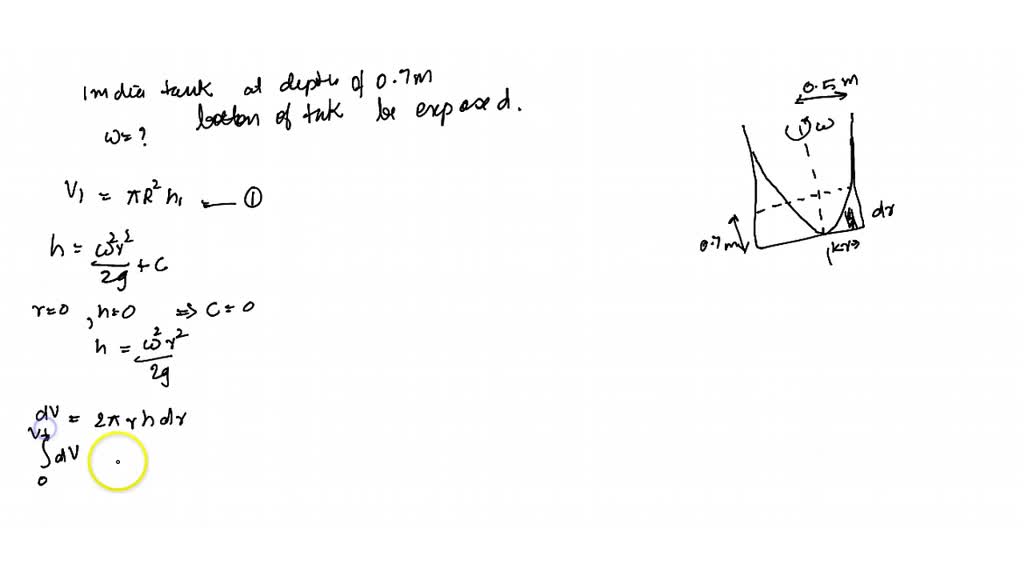 1m dia tank at depth of 0.7m
ω=? bottom of tak be exposed.
V₁ = πR²h₁ — ①
h = ω²r²/2g + C
r=0, h=0 ⇒ C=0
h = ω²r²/2g
dV = 2πrhdr
∫₀^Vf dV
0.5m
ω
dr
0.7m
r